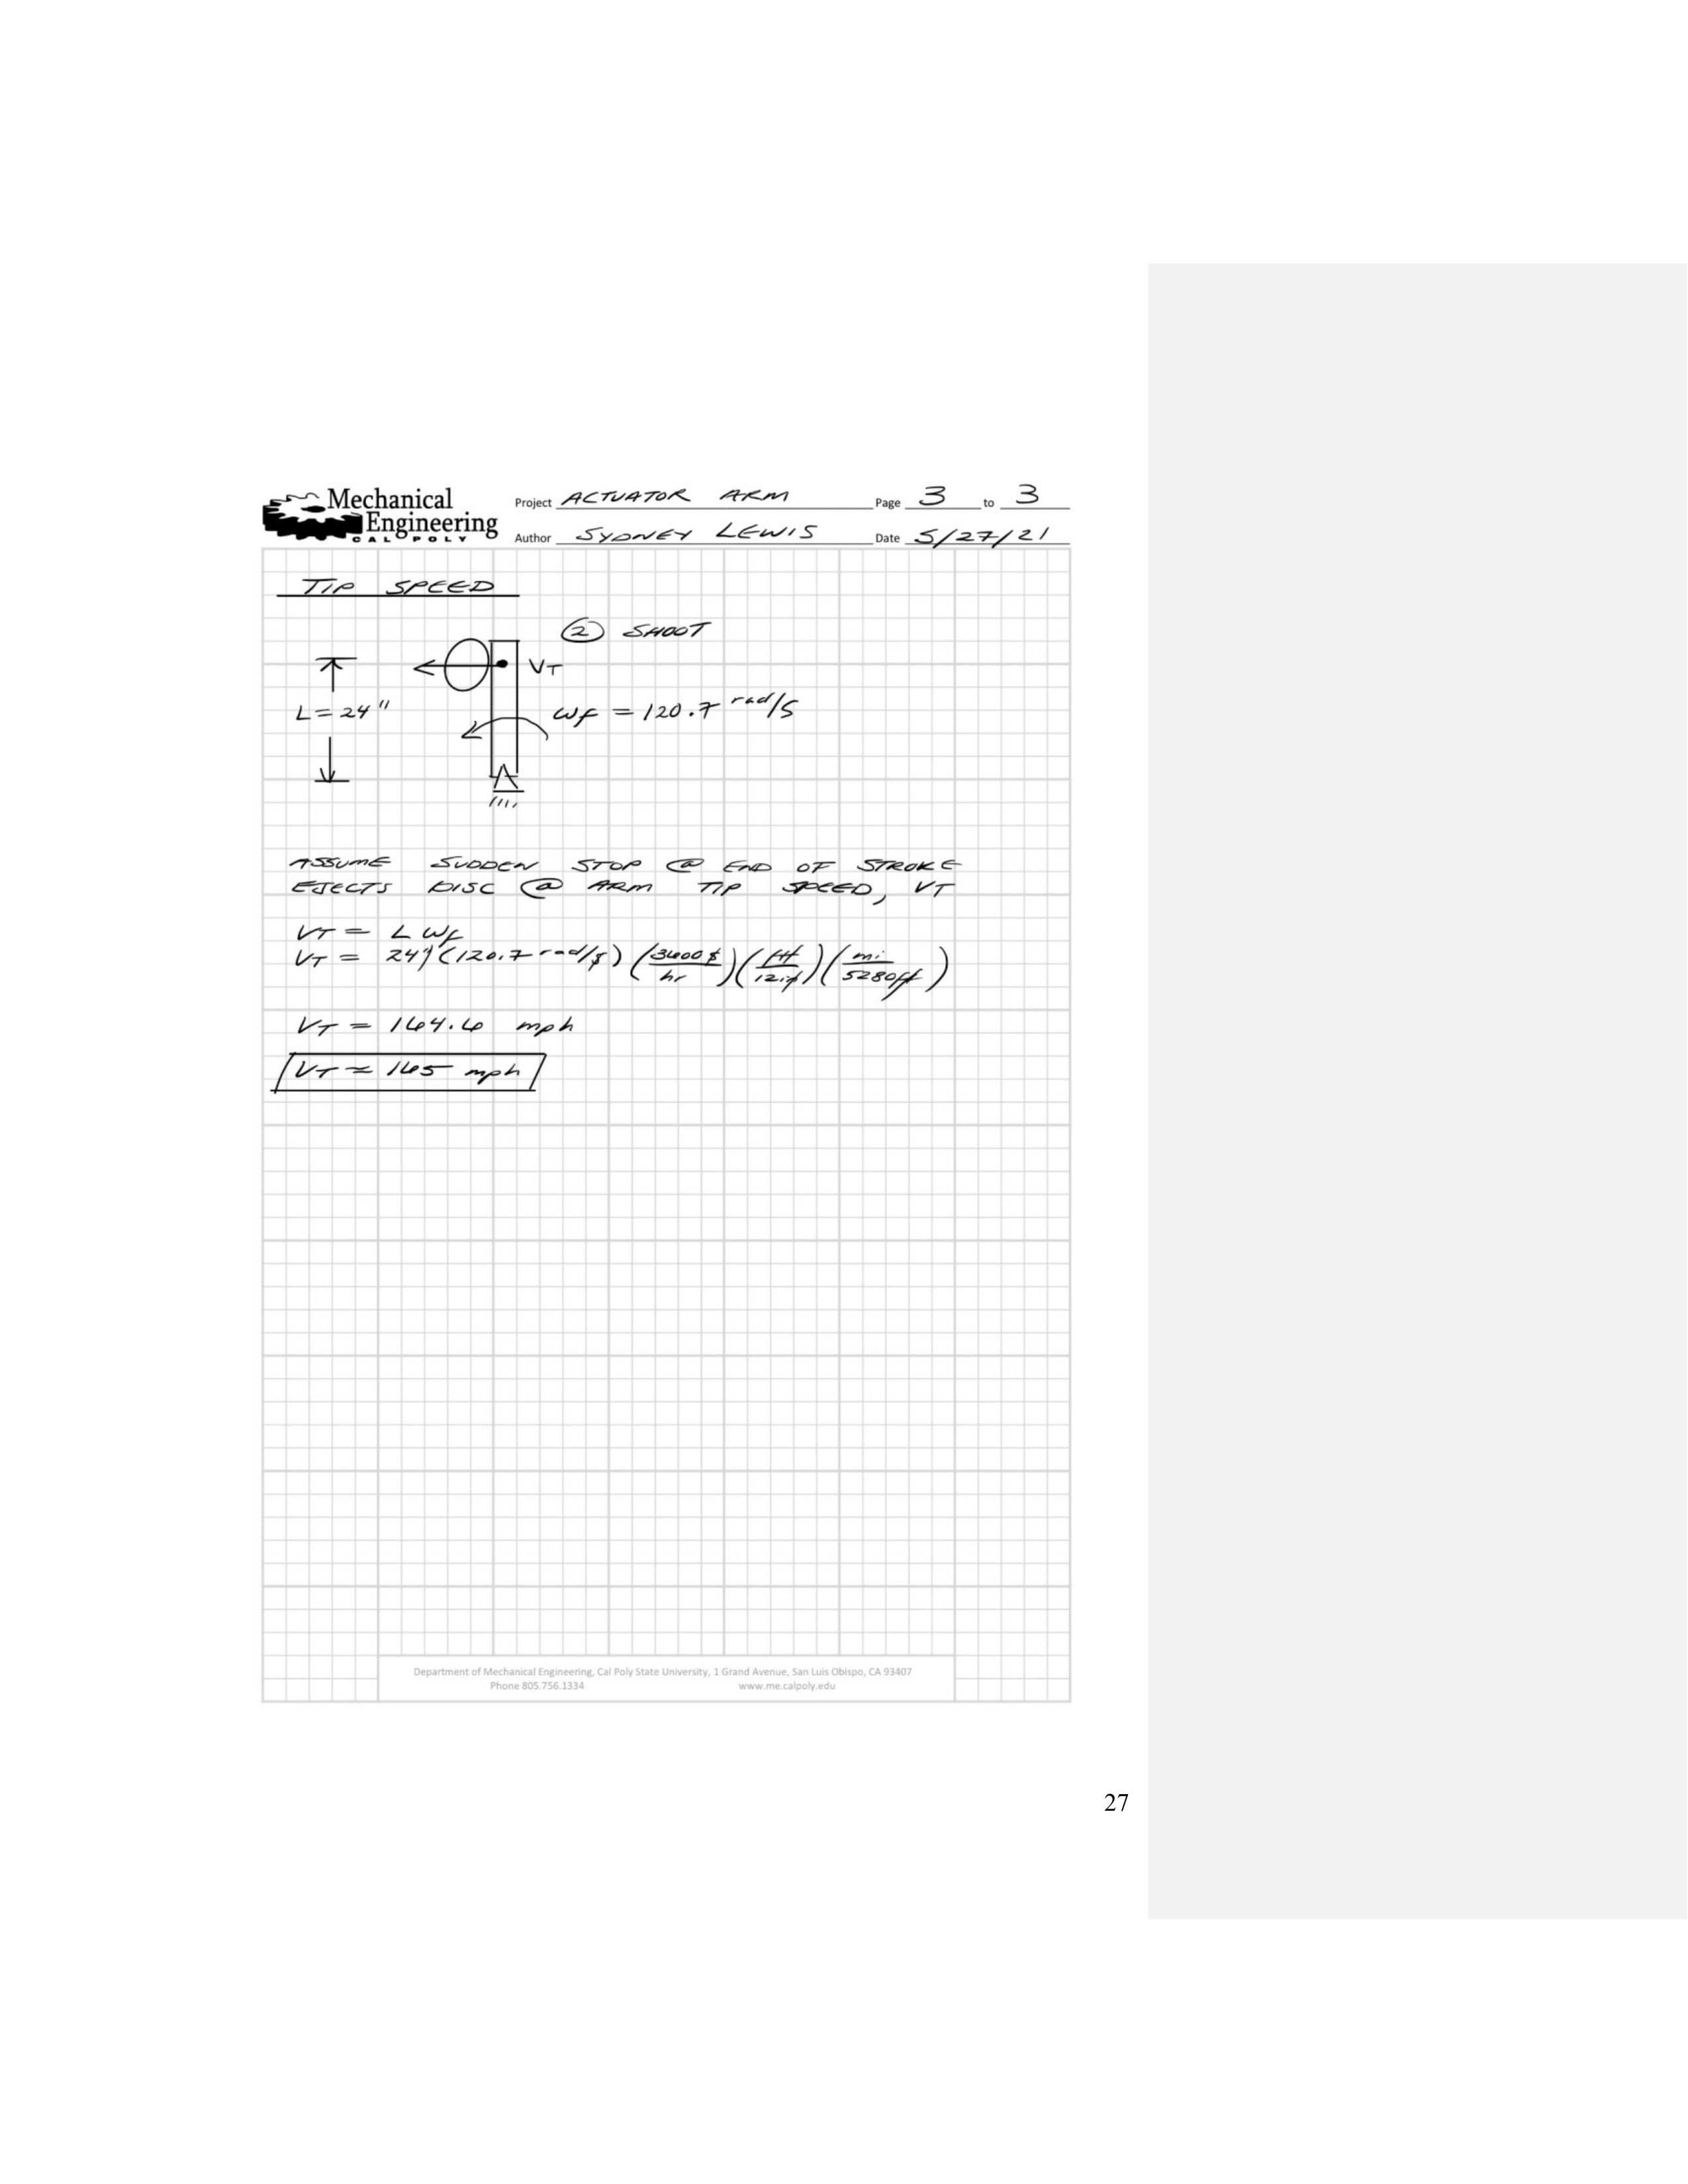 Mechanical
Engineering
CAL POLY
Project ACTUATOR ARM Page 3 to 3
Author SYDNEY LEWIS Date 5/27/21
TIP SPEED
② SHOOT
VT
L = 24"
ωf = 120.7 rad/s
ASSUME SUDDEN STOP @ END OF STROKE
EJECTS DISC @ ARM TIP SPEED, VT
VT = L ωf
VT = 24" (120.7 rad/s) (3600 s/hr) (ft/12 in) (mi/5280 ft)
VT = 164.6 mph
VT ≈ 165 mph
Department of Mechanical Engineering, Cal Poly State University, 1 Grand Avenue, San Luis Obispo, CA 93407
Phone 805.756.1334 www.me.calpoly.edu
27